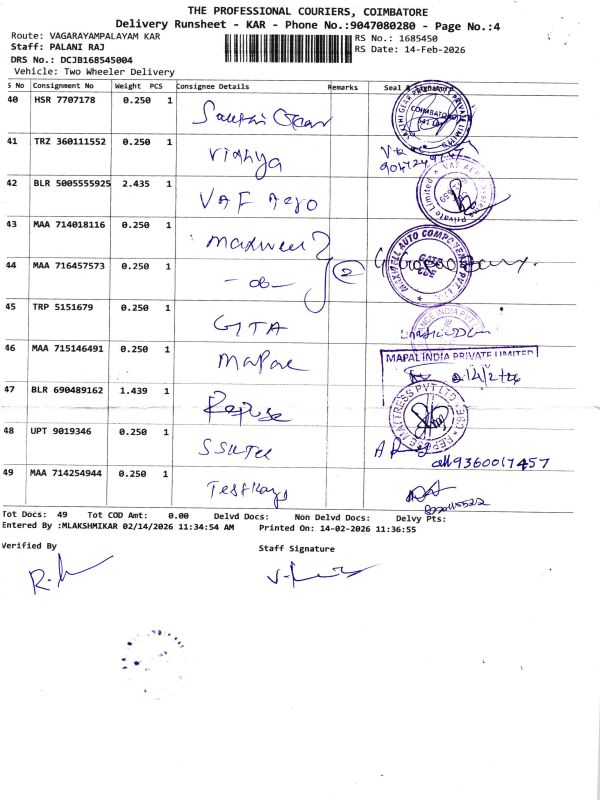 THE PROFESSIONAL COURIERS, COIMBATORE
Delivery Runsheet - KAR - Phone No.:9047080280 - Page No.:4
Route: VAGARAYAMPALAYAM KAR
RS No.: 1685450
Staff: PALANI RAJ
RS Date: 14-Feb-2026
DRS No.: DCJB168545004
Vehicle: Two Wheeler Delivery
S No Consignment No Weight PCS Consignee Details Remarks Seal
40 HSR 7707178 0.250 1
41 TRZ 360111552 0.250 1 Vidhya
42 BLR 5005555925 2.435 1 VAF Aero
43 MAA 714018116 0.250 1 Maxwell
44 MAA 716457573 0.250 1 - do - 2
45 TRP 5151679 0.250 1 GITA
46 MAA 715146491 0.250 1 Mapal
MAPAL INDIA PRIVATE LIMITED
47 BLR 690489162 1.439 1 Repose
48 UPT 9019346 0.250 1
9360017457
49 MAA 714254944 0.250 1
Tot Docs: 49 Tot COD Amt: 0.00 Delvd Docs: Non Delvd Docs: Delvy Pts:
Entered By :MLAKSHMIKAR 02/14/2026 11:34:54 AM Printed On: 14-02-2026 11:36:55
Verified By Staff Signature